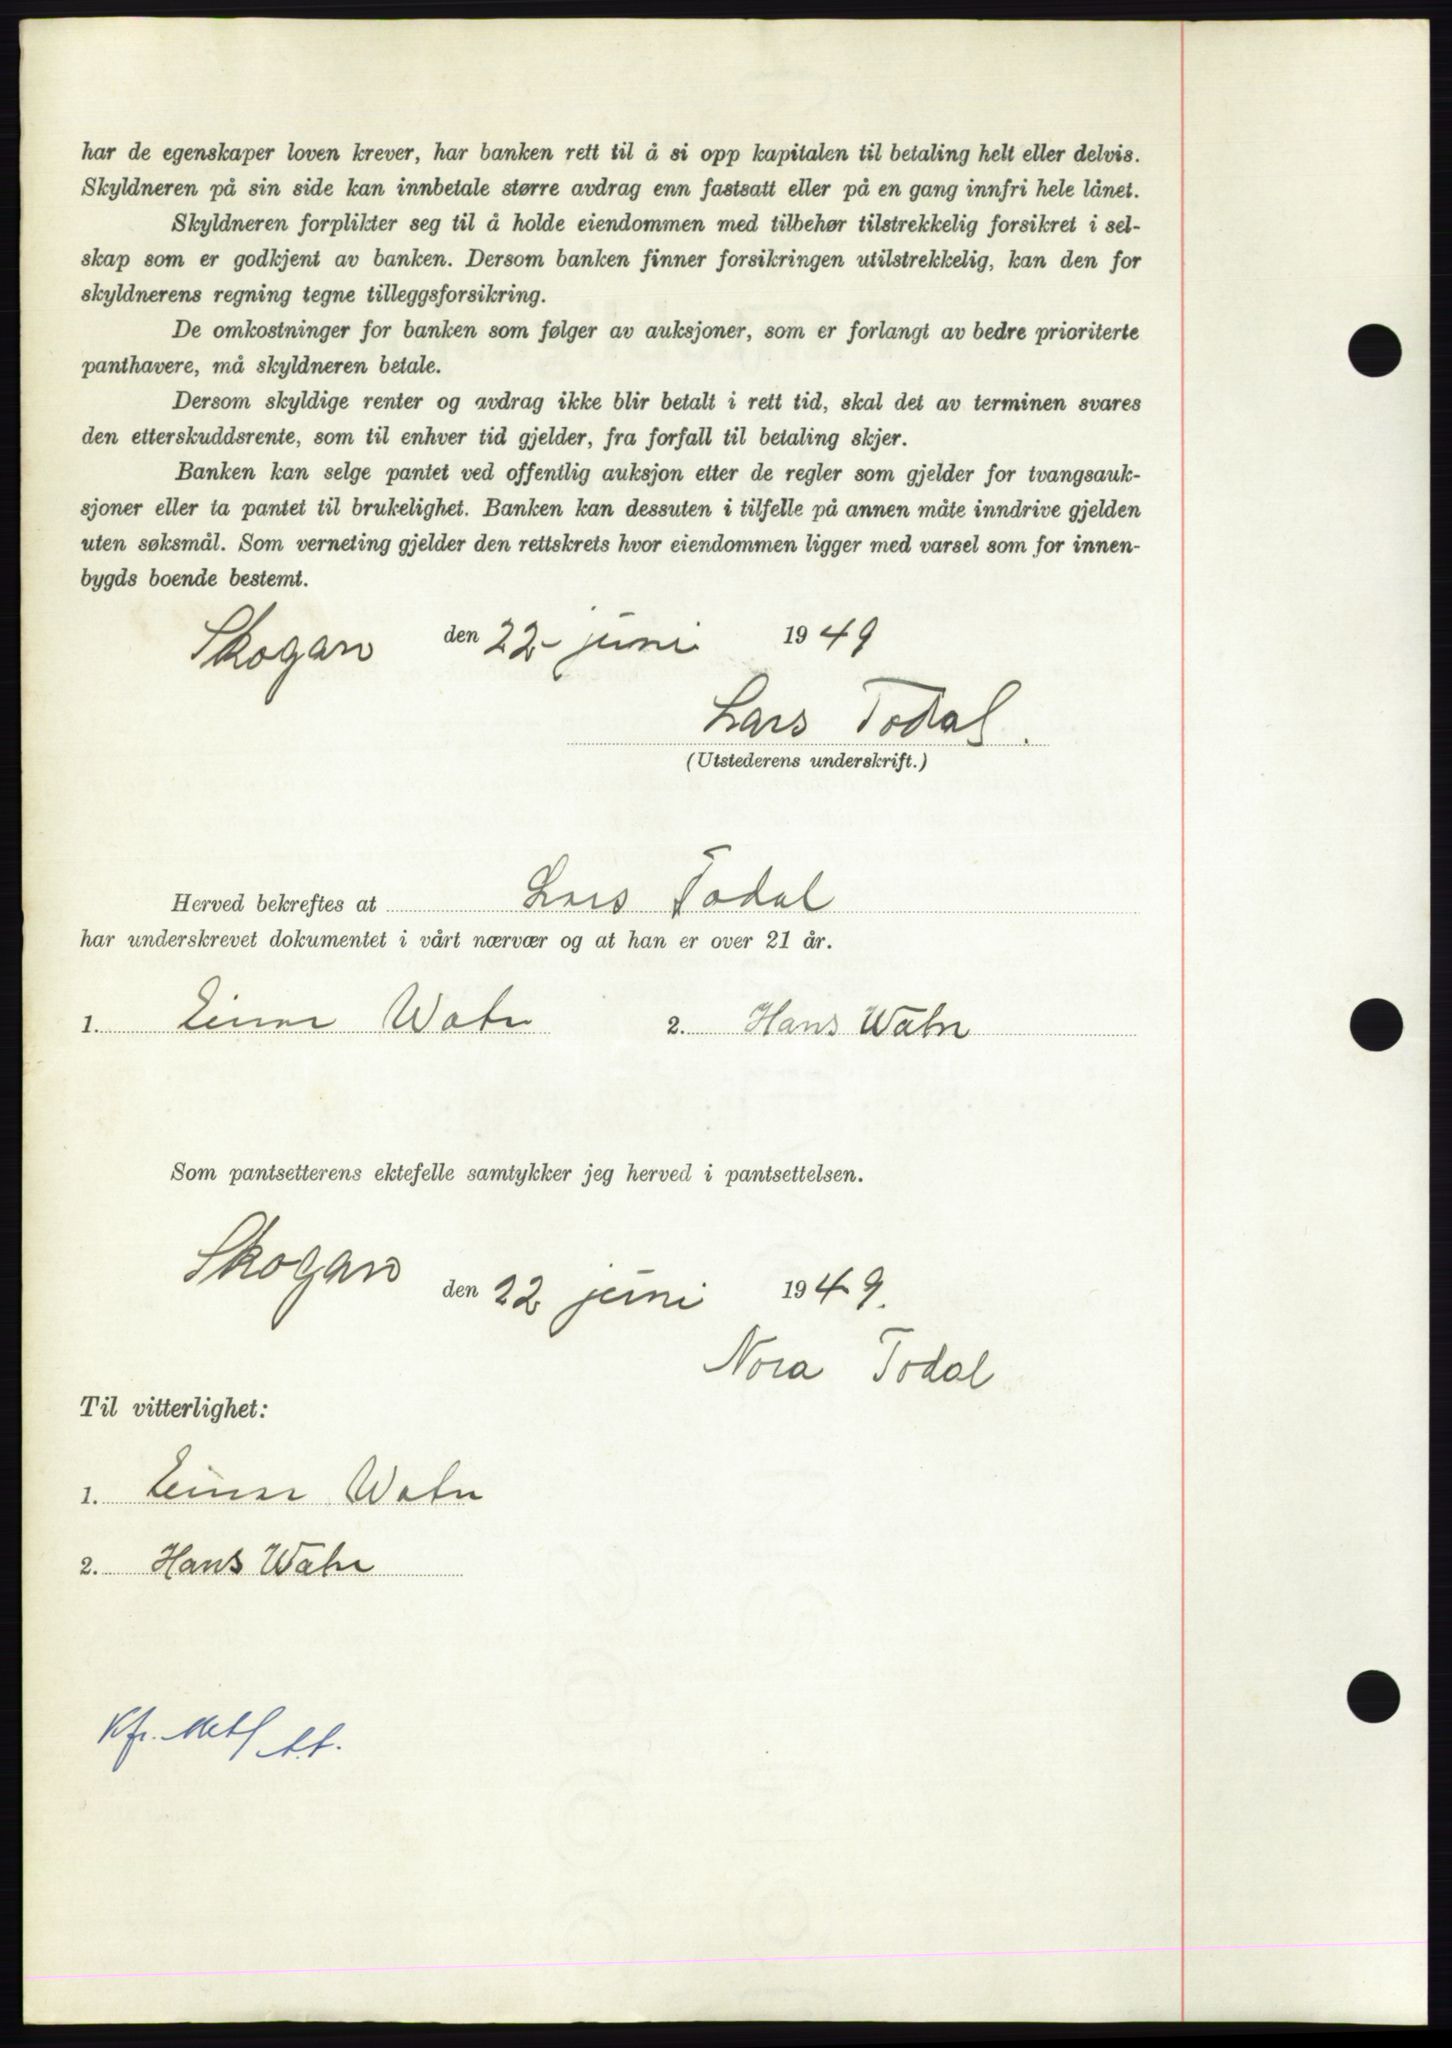 har de egenskaper loven krever, har banken rett til å si opp kapitalen til betaling helt eller delvis.
Skyldneren på sin side kan innbetale større avdrag enn fastsatt eller på en gang innfri hele lånet.
Skyldneren forplikter seg til å holde eiendommen med tilbehør tilstrekkelig forsikret i sel-
skap som er godkjent av banken. Dersom banken finner forsikringen utilstrekkelig, kan den for
skyldnerens regning tegne tilleggsforsikring.
De omkostninger for banken som følger av auksjoner, som er forlangt av bedre prioriterte
panthavere, må skyldneren betale.
Dersom skyldige renter og avdrag ikke blir betalt i rett tid, skal det av terminen svares
den etterskuddsrente, som til enhver tid gjelder, fra forfall til betaling skjer.
Banken kan selge pantet ved offentlig auksjon etter de regler som gjelder for tvangsauk-
sjoner eller ta pantet til brukelighet. Banken kan dessuten i tilfelle på annen måte inndrive gjelden
uten søksmål. Som verneting gjelder den rettskrets hvor eiendommen ligger med varsel som for innen-
bygds boende bestemt.
Skogan den 22 juni 1949
Lars Todal.
(Utstederens underskrift.)
Herved bekreftes at Lars Todal
har underskrevet dokumentet i vårt nærvær og at han er over 21 år.
1. Einar Watn 2. Hans Watn
Som pantsetterens ektefelle samtykker jeg herved i pantsettelsen.
Skogan den 22 juni 1949.
Nora Todal
Til vitterlighet:
1. Einar Watn
2. Hans Watn
Kfr.